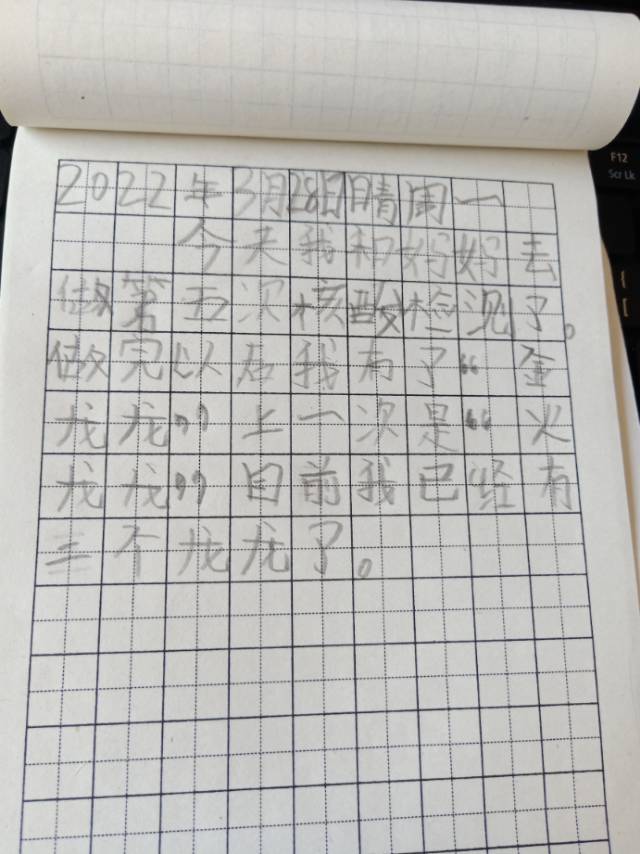 2022年3月28日晴周一
今天我和妈妈去
做第五次核酸检测了。
做完以后我有了“金
龙龙”上一次是“火
龙龙”目前我已经有
三个龙龙了。
F12
Scr Lk